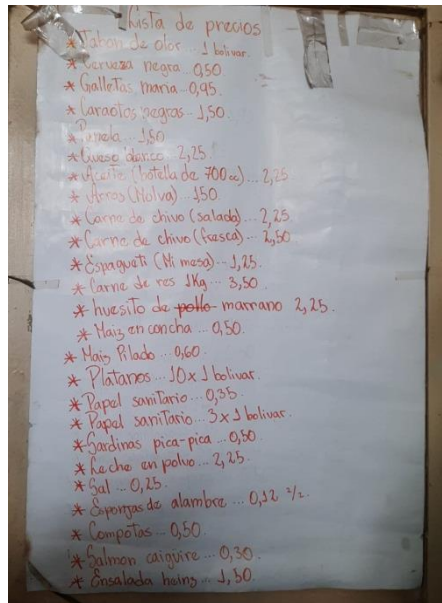 Lista de precios
* Jabon de olor... 1 bolivar.
* Cerveza negra 0,50
* Galletas maria... 0,95.
* Caraotas negras... 1,50.
* Panela... 1,50
* Queso blanco... 2,25.
* Aceite (botella de 700cc)... 2,25
* Arros (Molva) 150.
* Carne de chivo (salada)... 2,25.
* Carne de chivo (fresca)... 2,50
* Espagueti (Mi mesa)... 1,25.
* Carne de res 1Kg... 3,50
* huesito de pollo marrano 2,25.
* Maiz en concha... 0,50.
* Maiz Pilado... 0,60.
* Platanos... 10 x 1 bolivar.
* Papel sanitario... 0,35.
* Papel sanitario... 3 x 1 bolivar.
* Sardinas pica-pica... 0,50.
* Leche en polvo... 2,25.
* Sal... 0,25.
* Esponjas de alambre... 0,12 1/2.
* Compotas... 0,50.
* Salmon caigüire... 0,30.
* Ensalada heinz... 1,50.